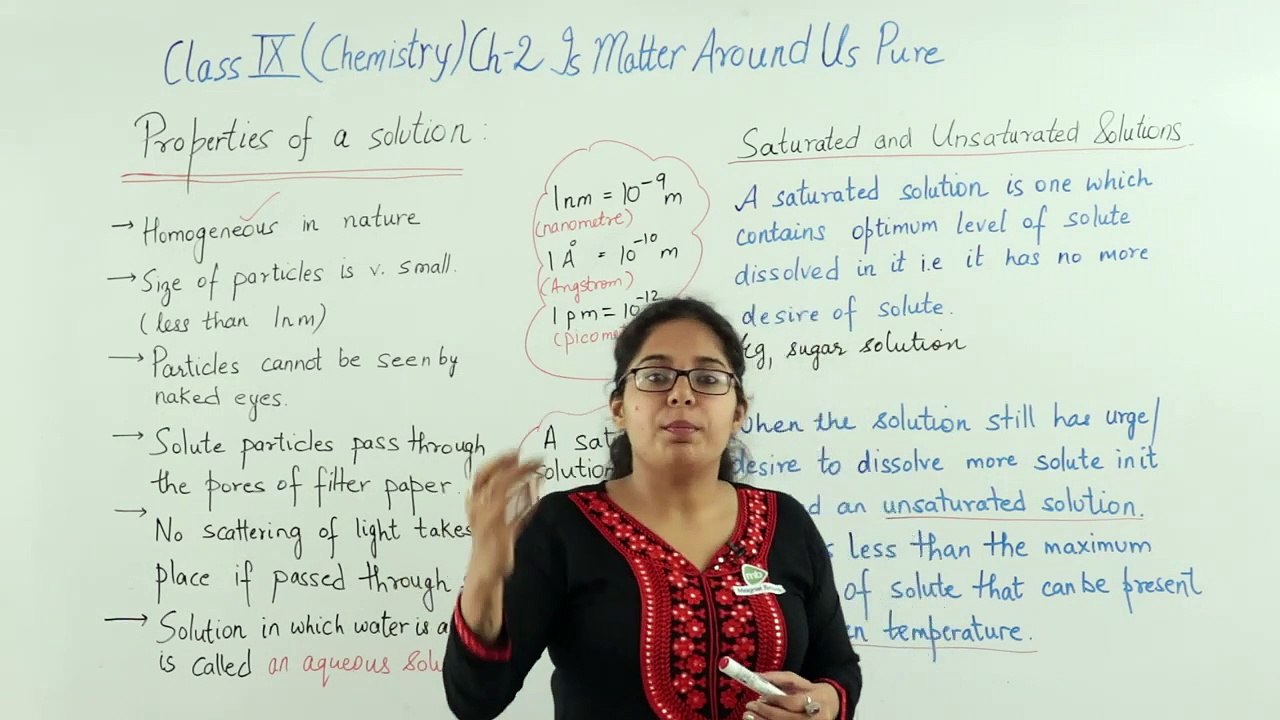 Class IX (Chemistry) Ch-2 Is Matter Around Us Pure
Properties of a solution:
→ Homogeneous in nature
→ Size of particles is v. small.
(less than 1nm)
→ Particles cannot be seen by
naked eyes.
→ Solute particles pass through
the pores of filter paper.
→ No scattering of light takes
place if passed through
→ Solution in which water is a
is called an aqueous
1nm = 10⁻⁹ m
(nanometre)
1 Å = 10⁻¹⁰ m
(Angstrom)
1 pm = 10⁻¹²
A
solution
Saturated and Unsaturated Solutions
A saturated solution is one which
contains optimum level of solute
dissolved in it i.e it has no more
desire of solute.
Eg, sugar solution
when the solution still has urge/
desire to dissolve more solute in it
an unsaturated solution.
less than the maximum
of solute that can be present
temperature.
mb